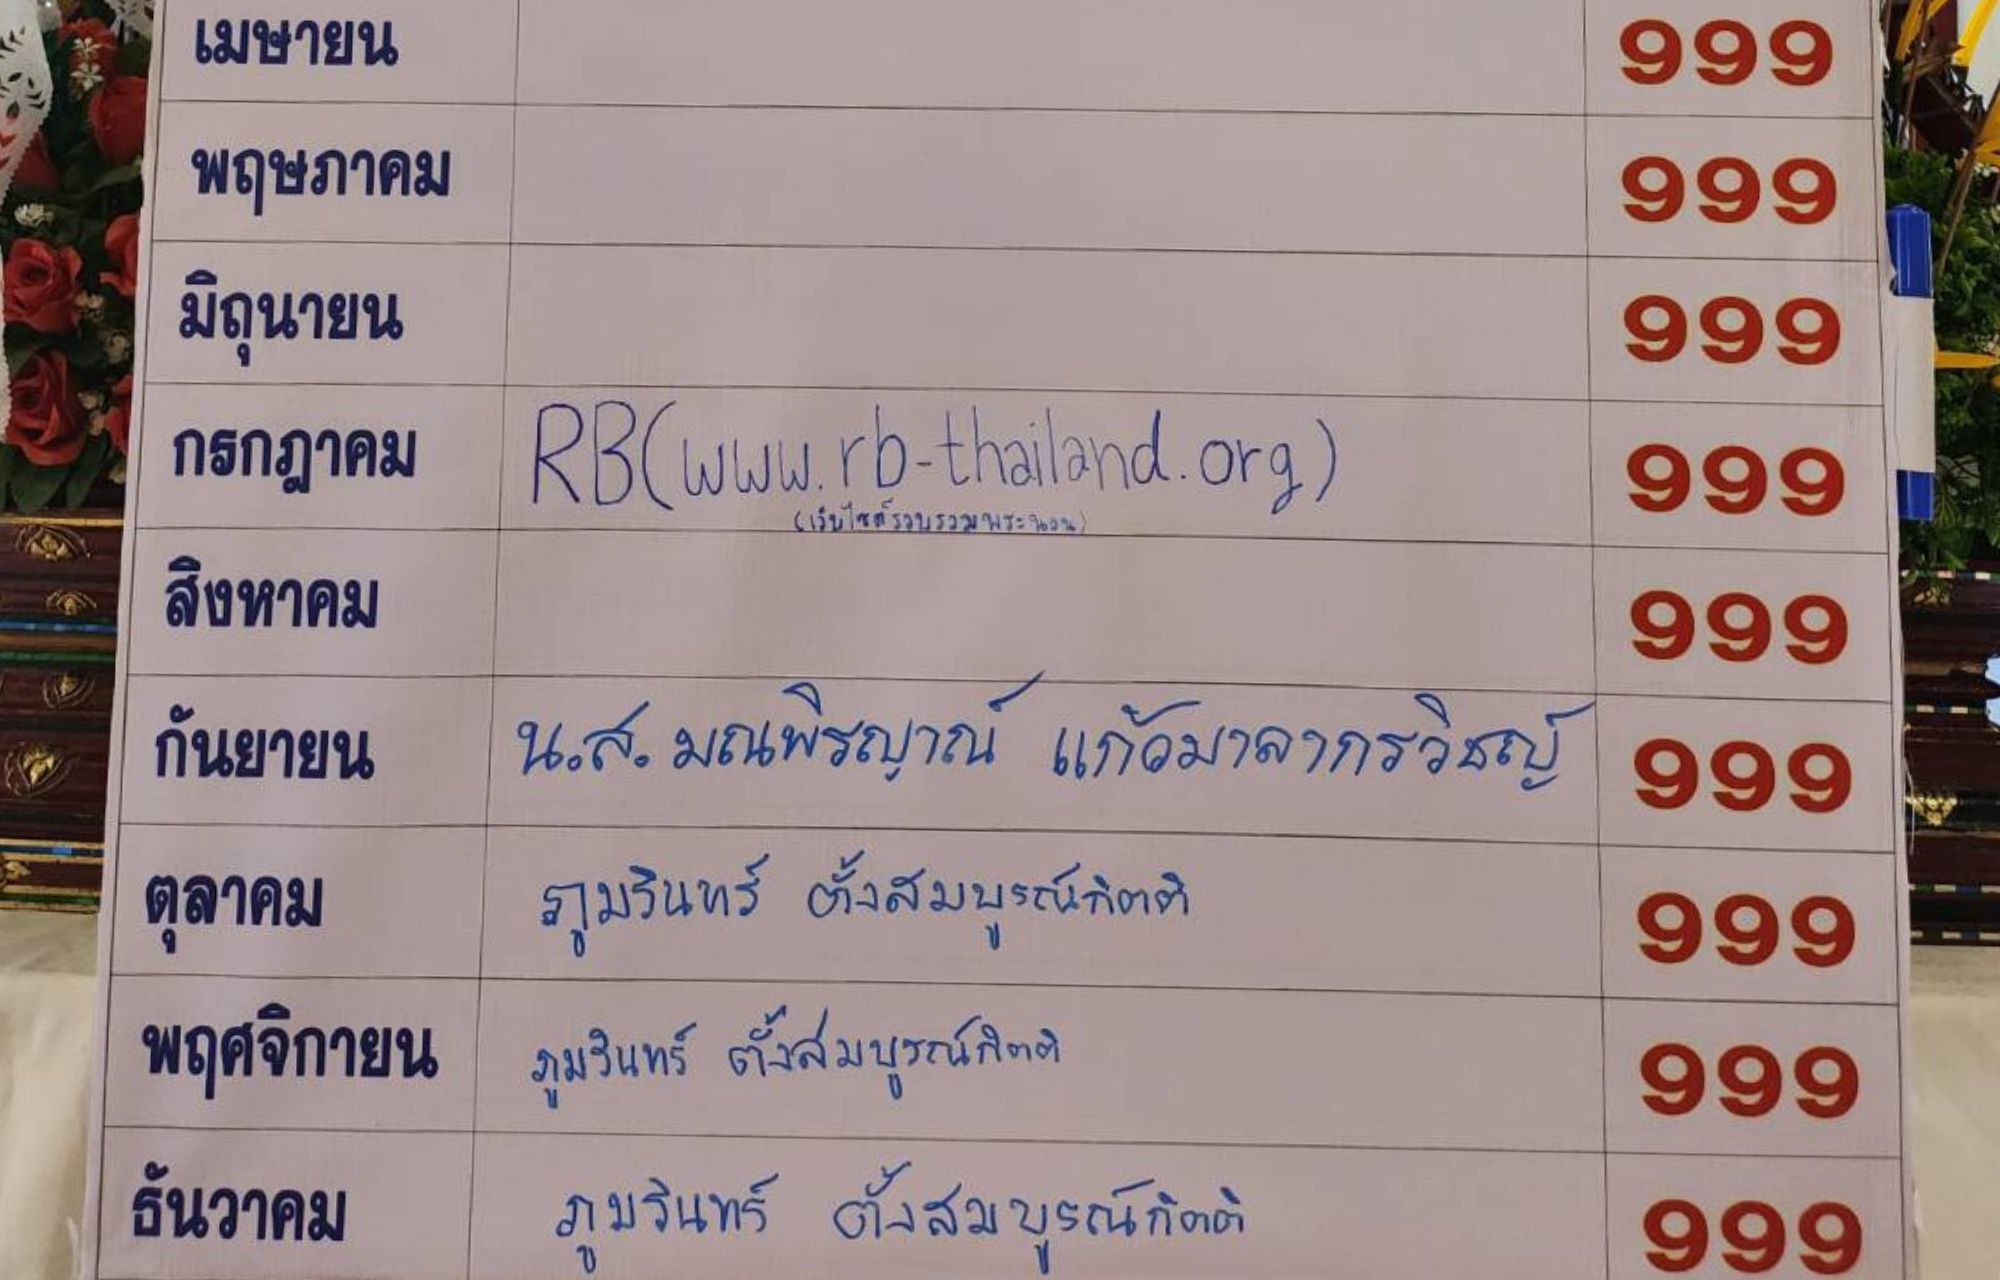 เมษายน 999
พฤษภาคม 999
มิถุนายน 999
กรกฎาคม RB(www.rb-thailand.org) 999
(เว็บไซต์รวบรวมพระนอน)
สิงหาคม 999
กันยายน น.ส. มณพิรญาณ์ แก้วมาลากรวิชญ์ 999
ตุลาคม ภูมรินทร์ ตั้งสมบูรณ์กิตติ 999
พฤศจิกายน ภูมรินทร์ ตั้งสมบูรณ์กิตติ 999
ธันวาคม ภูมรินทร์ ตั้งสมบูรณ์กิตติ 999